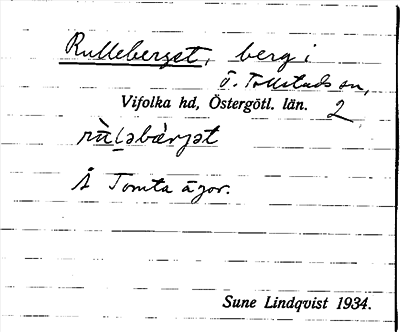 Rulleberget, berg i
Ö. Tollstads sn,
Vifolka hd, Östergötl. län. 2
rùləbærjət
Å Tomta ägor.
Sune Lindqvist 1934.